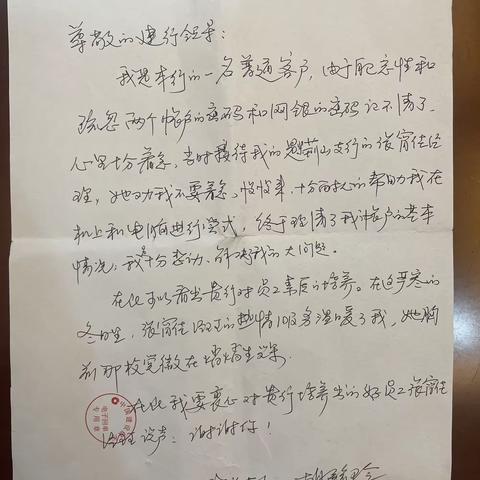 尊敬的建行领导：
我是本行的一名普通客户，由于记忘性和
疏忽两个帐户的密码和网银的密码记不清了，
心里十分着急，当时接待我的是荆山支行的张富佳经
理，她劝我不要着急，慢慢来，十分耐心的帮助我在
机上和电脑进行尝试，终于理清了我帐户的基本
情况，我十分感动，解决了我的大问题。
在此可以看出贵行对员工素质的培养。在这严寒的
冬日里，张富佳经理的热情服务温暖了我，她胸
前那枚党徽在熠熠生辉。
在此我要衷心对贵行培养出的好员工张富佳
经理说声：谢谢你！
电子回单
专用章